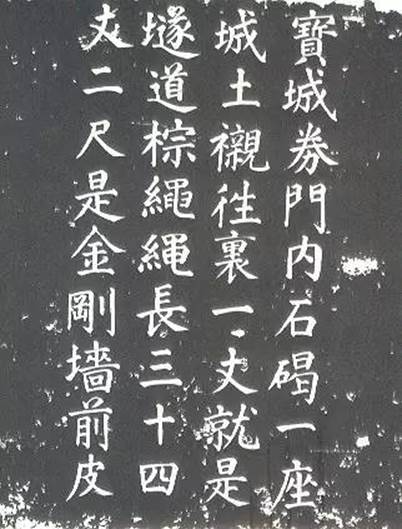 寶城券門内石碣一座
城土襯徃裏一丈就是
𡑞道棕繩繩長三十四
丈二尺是金剛墻前皮